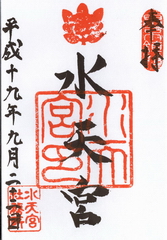 奉拝
水天宮
平成十九年九月二十二日
水天宮
社務所